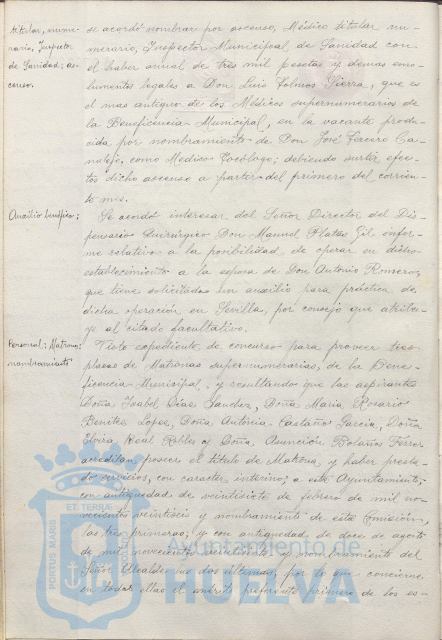 titular, nume-
rario, Inspector
de Sanidad; as-
censo.
se acordó nombrar por ascenso, Médico titular nu-
merario, Inspector Municipal de Sanidad con
el haber anual de tres mil pesetas y demas emo-
lumentos legales a Don Luis Tolmos Sierra, que es
el mas antiguo de los Médicos supernumerarios de
la Beneficencia Municipal, en la vacante produ-
cida por nombramiento de Don José Tercero Ca-
nalejo, como Medico Tocologo; debiendo surtir efec-
tos dicho ascenso a partir del primero del corrien-
te mes.
Auxilio benéfico;
Se acordó interesar del Señor Director del Dis-
pensario Quirúrgico Don Manuel Platas Gil, infor-
me relativo a la posibilidad de operar en dicho
establecimiento a la esposa de Don Antonio Romero,
que tiene solicitado un auxilio para práctica de
dicha operación en Sevilla, por consejo que atribu-
ye al citado facultativo.
Personal: Matronas;
nombramiento
Visto expediente de concurso para proveer tres
plazas de Matronas supernumerarias, de la Bene-
ficencia Municipal, y resultando que las aspirantes
Doña Isabel Dias Sanchez, Doña Maria Rosario
Benitez Lopez, Doña Antonia Castaños Garcia, Doña
Elvira Real Robles y Doña Asunción Bolaños Ferrer
acreditan poseer el título de Matrona, y haber presta-
do servicios, con caracter interino, a este Ayuntamiento;
con antiguedad de veintisiete de febrero de mil no-
vecientos veintiseis y nombramiento de esta Comisión,
las tres primeras; y con antiguedad de doce de agosto
de mil novecientos y nombramiento del
Señor Alcalde las dos últimas; por lo que concierne
en todas ellas el mérito preferente primero de los es-
PORTUS MARIS
ET TERRAE
Ayuntamiento de
HUELVA